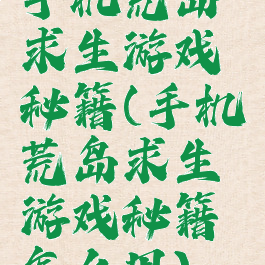 手机荒岛
求生游戏
秘籍(手机
荒岛求生
游戏秘籍
怎么用)